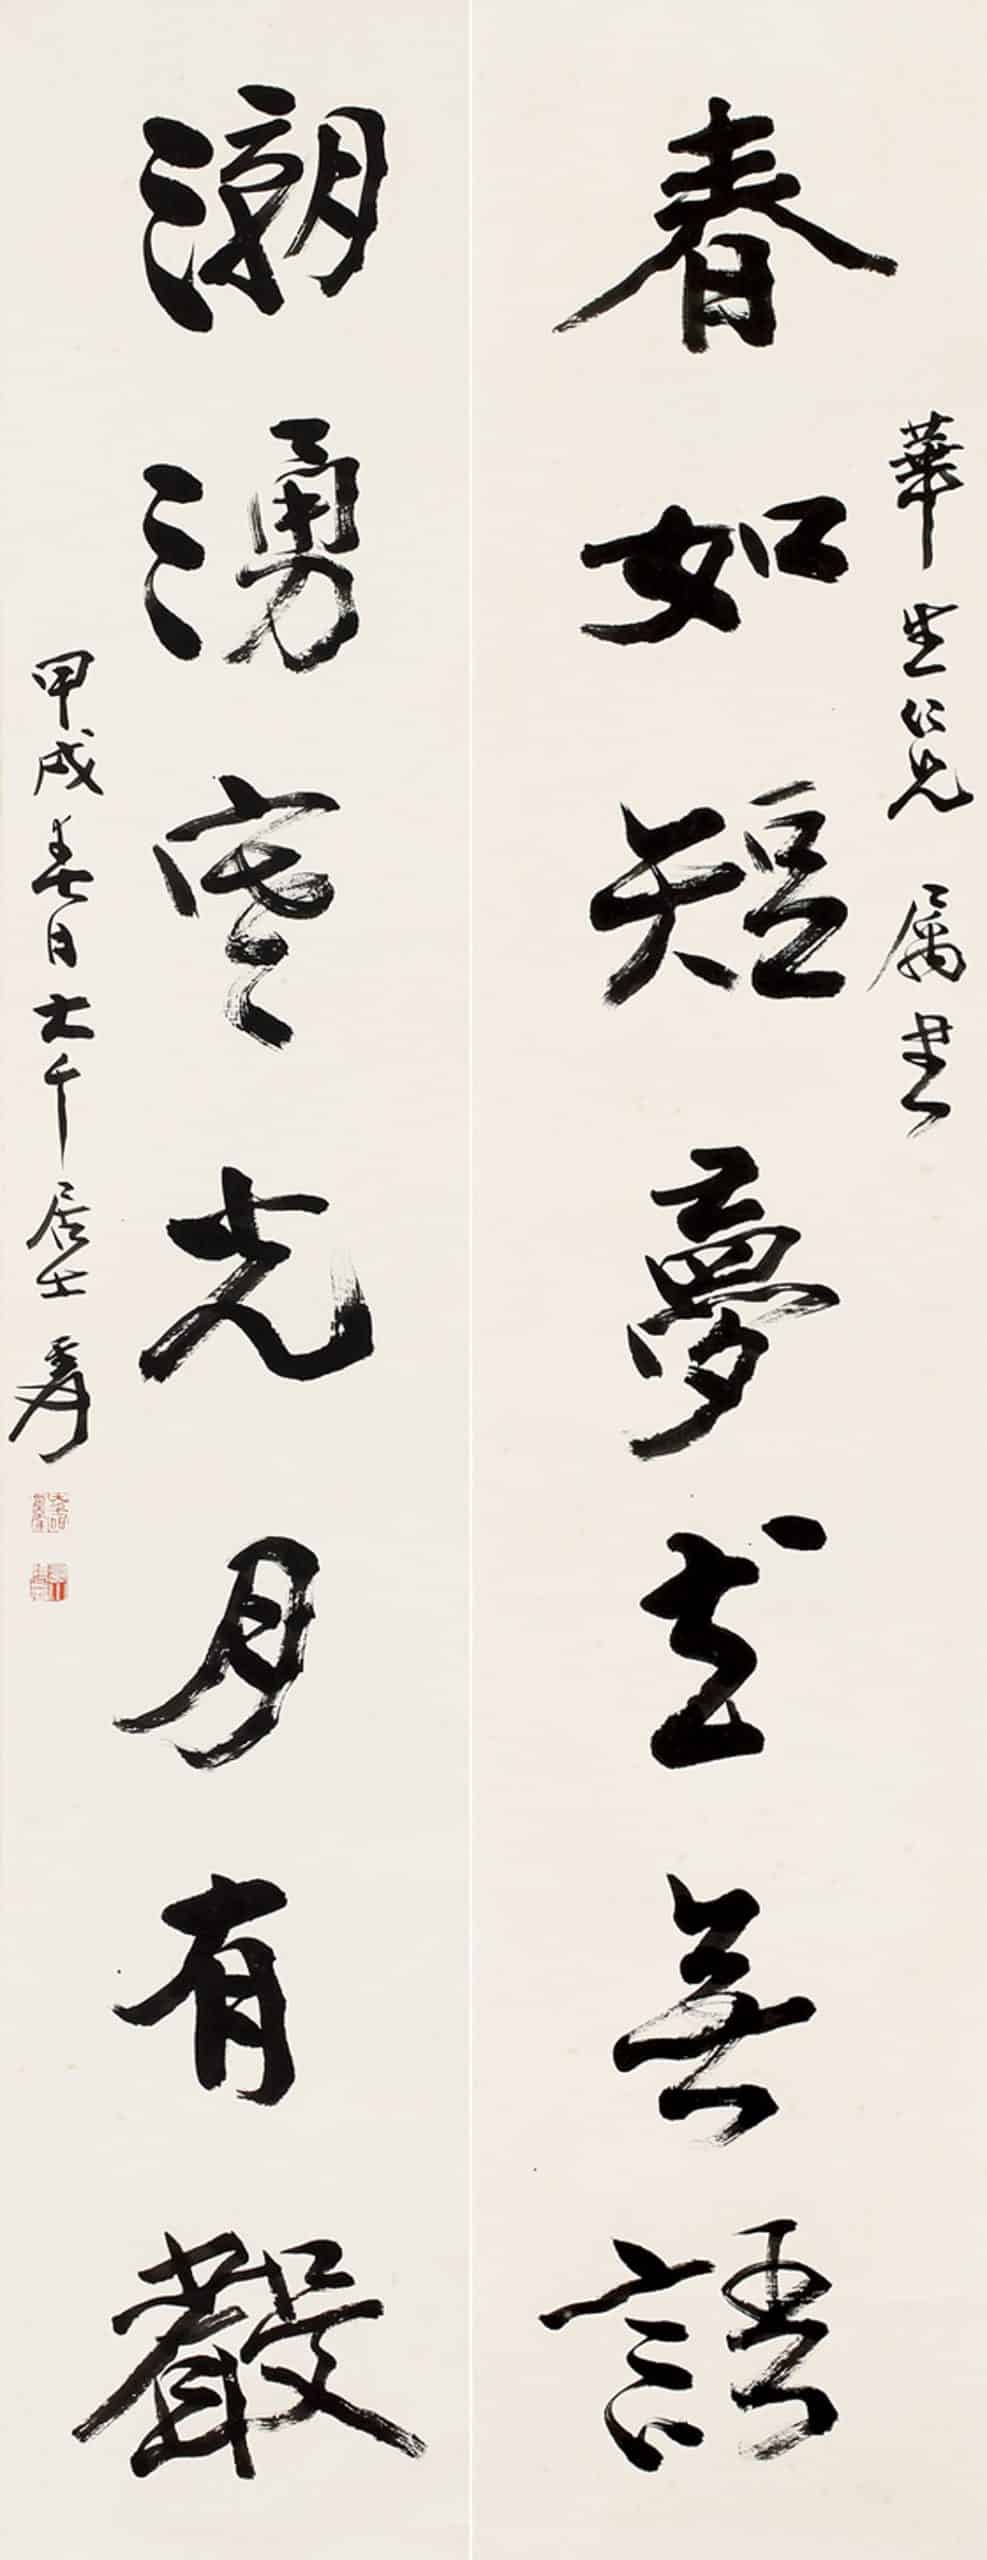 華生仁兄屬書
春如短夢無語
潮湧寒光月有聲
甲戌春日大千居士爰